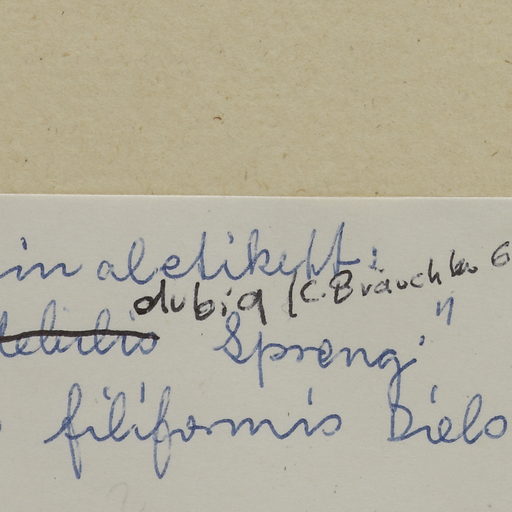 inaletikett:
dubia (C. Bräuchler 6
Spreng"
filiformis Diels